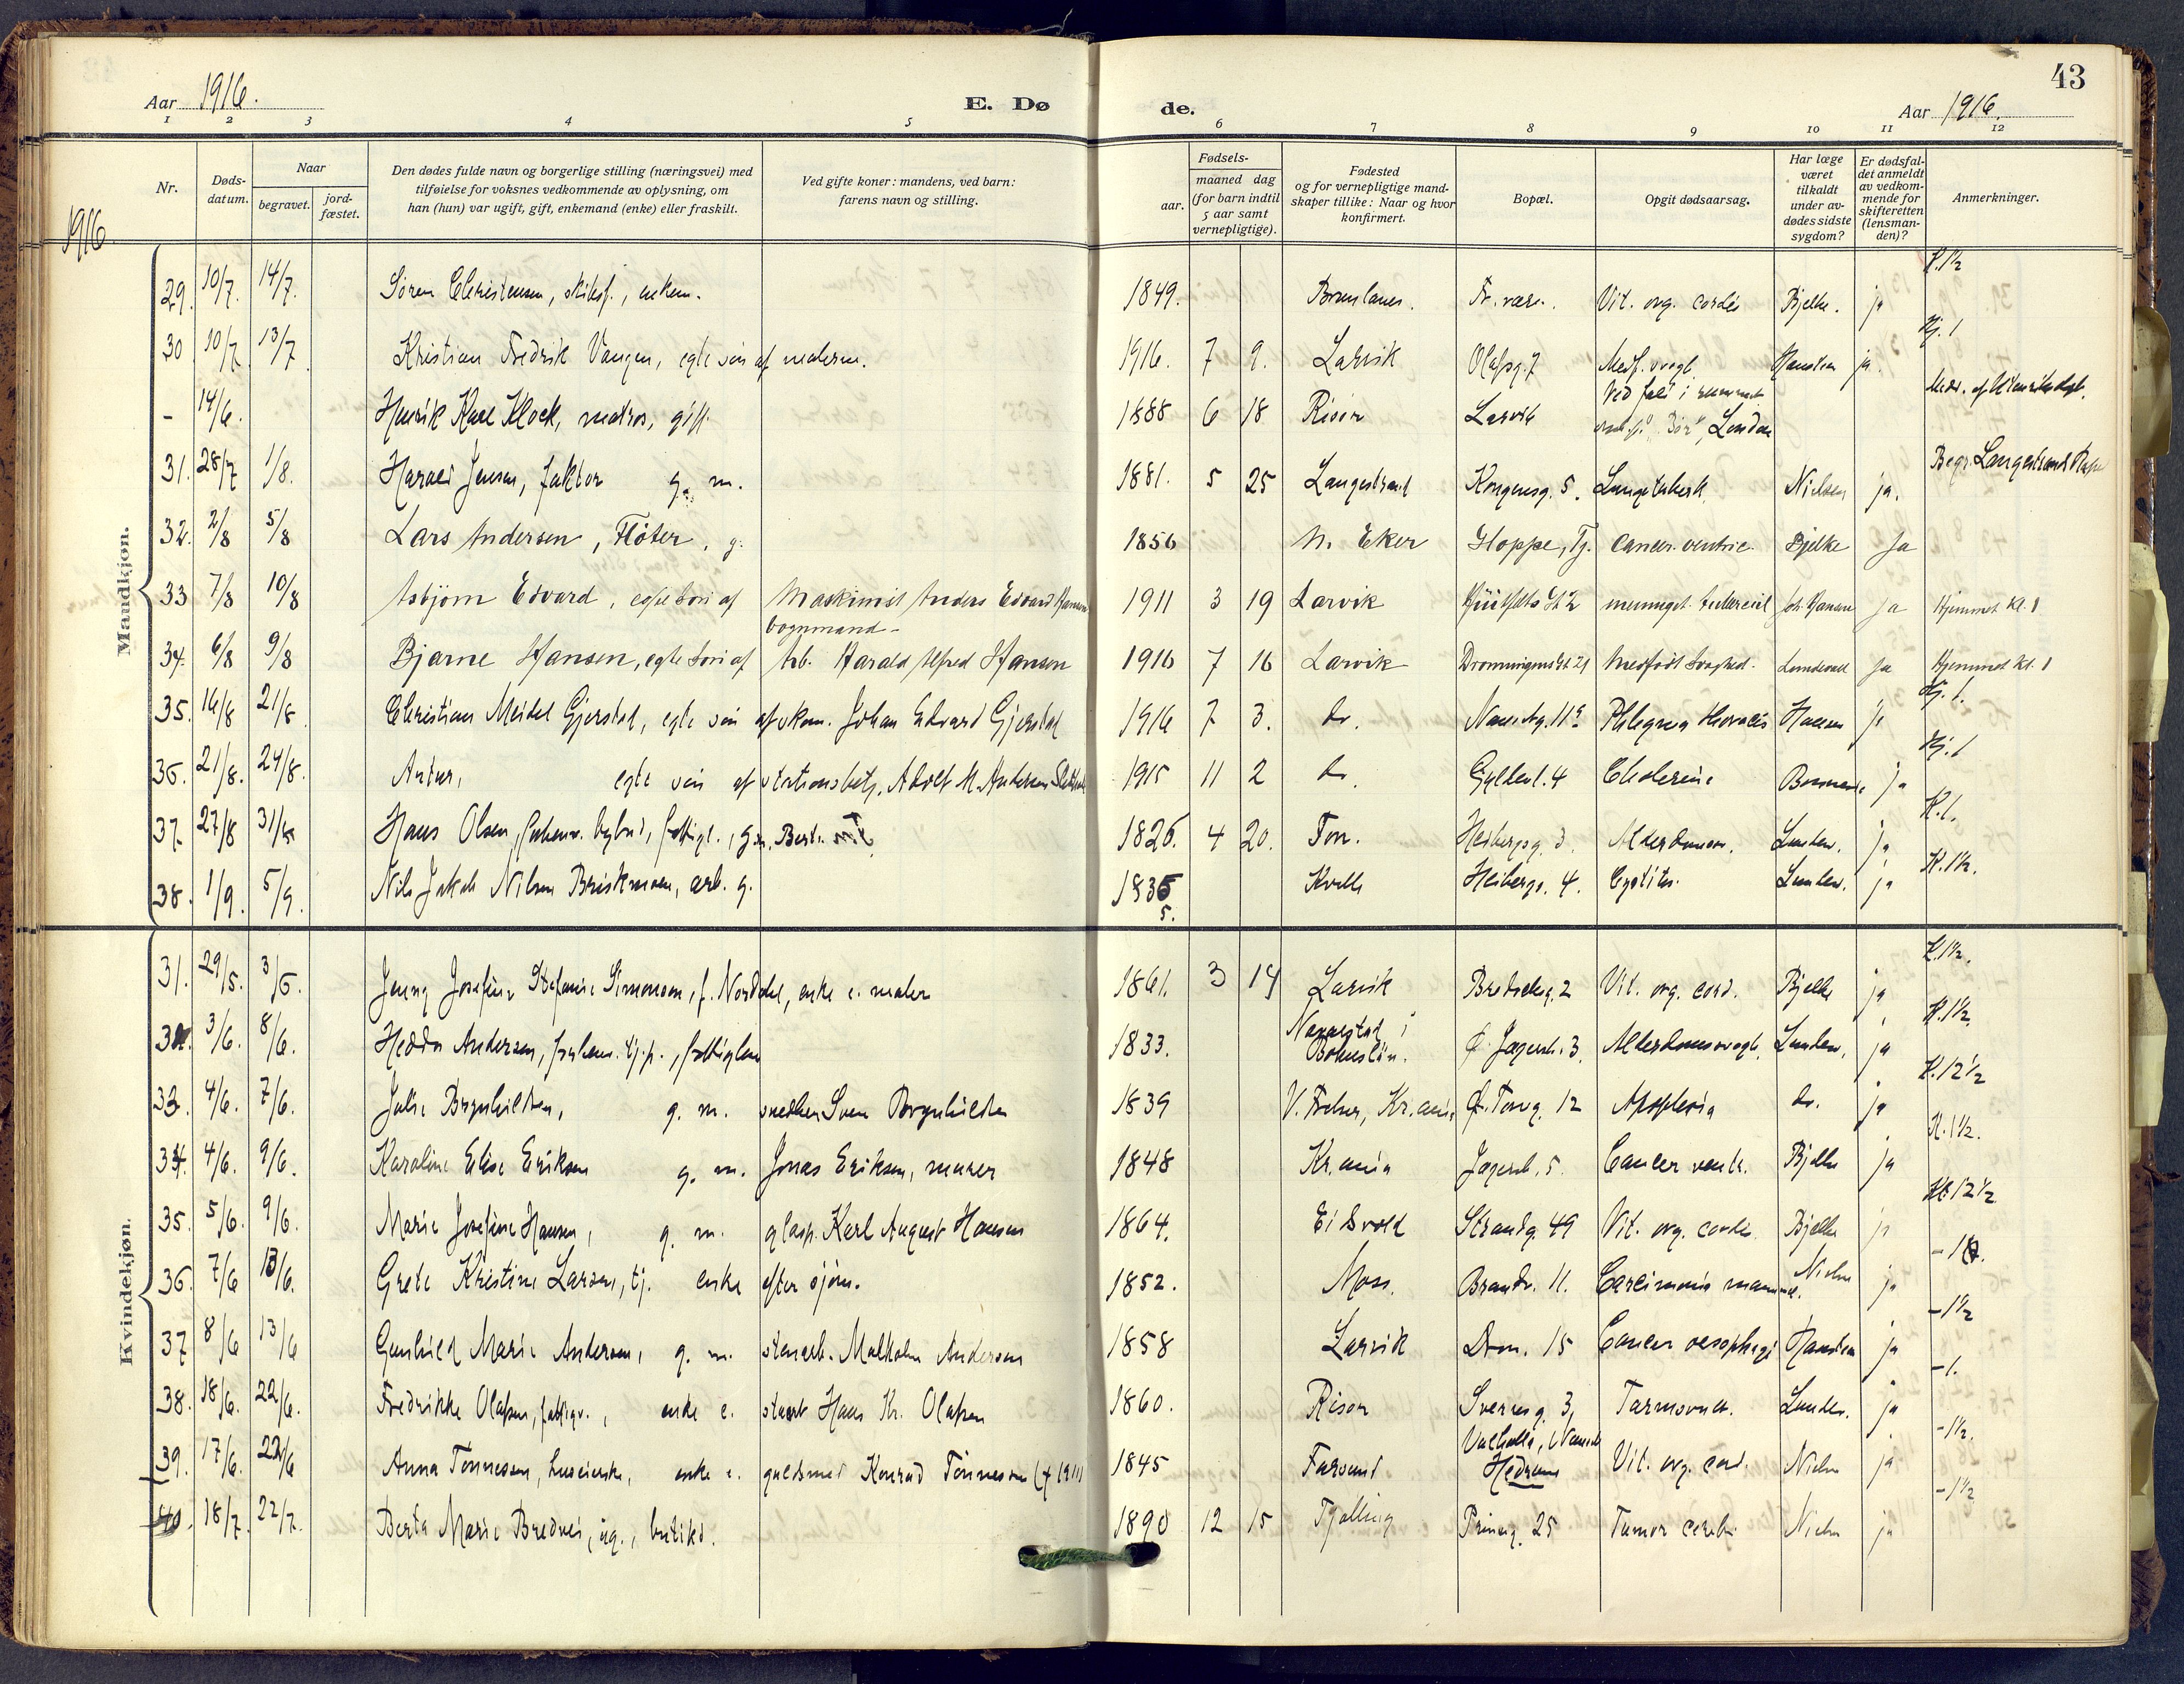 43
Aar 1916.
E. Døde.
Aar 1916.
1 2 3 4 5 6 7 8 9 10 11 12
Nr.
Døds-datum.
Naar
begravet.
jord-fæstet.
Den dødes fulde navn og borgerlige stilling (næringsvei) med
tilføielse for voksnes vedkommende av oplysning, om
han (hun) var ugift, gift, enkemand (enke) eller fraskilt.
Ved gifte koner: mandens, ved barn:
farens navn og stilling.
Fødsels-
aar.
maaned dag
(for barn indtil
5 aar samt
vernepligtige).
Fødested
og for vernepligtige mand-
skaper tillike: Naar og hvor
konfirmert.
Bopæl.
Opgit dødsaarsag.
Har læge
været
tilkaldt
under av-
dødes sidste
sygdom?
Er dødsfal-
det anmeldt
av vedkom-
mende for
skifteretten
(lensman-
den)?
Anmerkninger.
1916
Mandkjøn.
29. 10/7. 14/7. Søren Christensen, skibsf., enkem. 1849. Brunlanes. Vit. org. cordis Bjelke. ja K. 1½
30 10/7 13/7 Kristian Fredrik Vangen, egte søn af malerm. 1916. 7 9. Larvik Olafsg. 7 Medf. svagh. Hansteen ja. Hj. 1
- 14/6. Henrik Kare Klock, matros, gift 1888 6 18 Risør Larvik Ved fald i London
31. 28/7 1/8. Harald Jensen, faktor g. m. 1881. 5 25 Langestrand Kongensg. 5. Lungetuberk. Nielsen ja. Begr. Langestrand
32. 2/8 5/8 Lars Andersen, Fløter, g. 1856 N. Eker Hoppe, Tj. Cancer. ventric. Bjelke Ja
33 7/8 10/8 Asbjørn Edvard, egte søn af Maskinist Anders Edvard Hansen 1911 3 19 Larvik meninget. tuberkul Joh. Hansen Ja Hjemmet Kl. 1
34. 6/8 9/8 Bjarne Hansen, egte søn af bognmand- Arb. Harald Alfred Hansen 1916 7 16 Larvik Dronningens Gt. 21 Medfødt Svaghed. Lundevall Ja Hjemmet Kl. 1
35. 16/8 21/8 Christian Meidel Gjerstad, egte søn af skom. Johan Edvard Gjerstad 1916 7 3. do. Phlegma thoracis Hansen ja Hj. 1.
36. 21/8. 24/8. Antur, egte søn af stationsbetj. Adolf M. Andersen 1915 11 2 do. Gyldenl. 4 Cholerine ja Hj. 1
37. 27/8 31/8 Hans Olsen, forhenv. bybud, fattigl., g.m. Berte 1826. 4 20. Fon. Heibergsg. 3. Alderdomssv. Lundev. ja K. 1.
38. 1/9. 5/9. Nils Jakob Nilsen Briskmoen, arb. g. 1835 5. Kvelle Heibergs. 4. Cystitis. Lundev. ja K. 1½.
Kvindekjøn.
31. 29/5. 3/6. Jenny Josefine Stefanie Simonsen, f. Norddal, enke e. maler 1861. 3 14 Larvik Bredocksg. 2 Vit. org. cord. Bjelke ja K. 1½.
32. 3/6. 8/6. Hedda Andersen, forhenv. tj.p., fattiglem 1833. Naverstad i Bohuslän. Jegersb. 3. Alderdomssvagh. Lundev. ja K. 1½.
33. 4/6. 7/6. Julie Brynhildsen, g. m. snedker Sven Brynhildsen 1839 V. Freder, Kr.ania Ø. Torvg. 12 Apoplexia do. ja K. 12½
34. 4/6. 9/6. Karoline Elise Eriksen g. m. Jonas Eriksen, murer 1848 Kr.ania Jegersb. 5. Cancer ventr. Bjelke ja K. 1½.
35. 5/6. 9/6. Marie Josefine Hansen, g. m. glasp. Karl August Hansen 1864. Eidsvold Strandg. 49 Vit. org. cordis Bjelke ja 12½
36. 7/6 13/6. Grete Kristine Larsen, tj. enke efter sjøm. 1852. Moss. Brandv. 11. Carcinoma mammae. Nielsen ja
37 8/6 13/6 Gunhild Marie Andersen, g. m. stenarb. Malkolm Andersen 1858 Larvik Dron. 15 Cancer oesophagi Hansteen ja - 1½
38. 18/6. 22/6. Fredrikke Olafsen, fattigv., enke e. stuert Hans Kr. Olafsen 1860. Risør Sverresg. 3, Tarmsvulst. Lundev. ja - 1.
39. 17/6. 22/6 Anna Tønnesen, huseierske, enke e. guldsmed Konrad Tønnesen († 1911) 1845 Farsund Valhalla, Hedrum Vit. org. cord. Nielsen ja - 1½.
40. 18/7. 22/7. Berta Marie Bredvei, ug., butikd. 1890 12 15 Tjølling Prinseg. 25 Tumor cerebri Nielsen ja - 1½